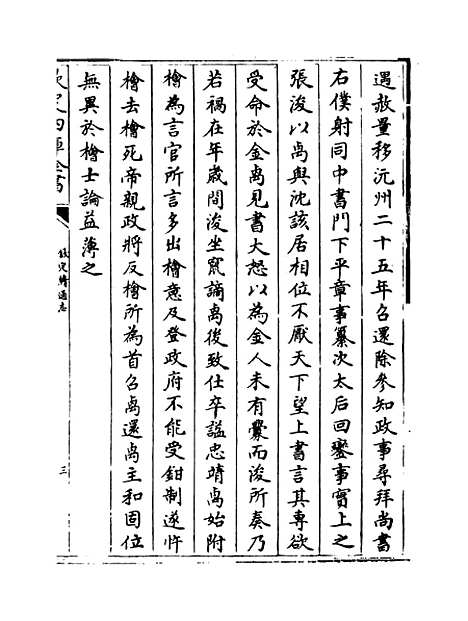 遇赦量移沅州二十五年召還除參知政事尋拜尚書
右僕射同中書門下平章事纂次太后回鑾事實上之
張浚以卨與沈該居相位不厭天下望上書言其專欲
受命於金卨見書大怒以為金人未有釁而浚所奏乃
若禍在年歲間浚坐竄謫卨後致仕卒諡忠靖卨始附
檜為言官所言多出檜意及登政府不能受鉗制遂忤
檜去檜死帝親政將反檜所為首召卨還卨主和固位
無異於檜士論益薄之
欽定四庫全書
欽定續通志
三